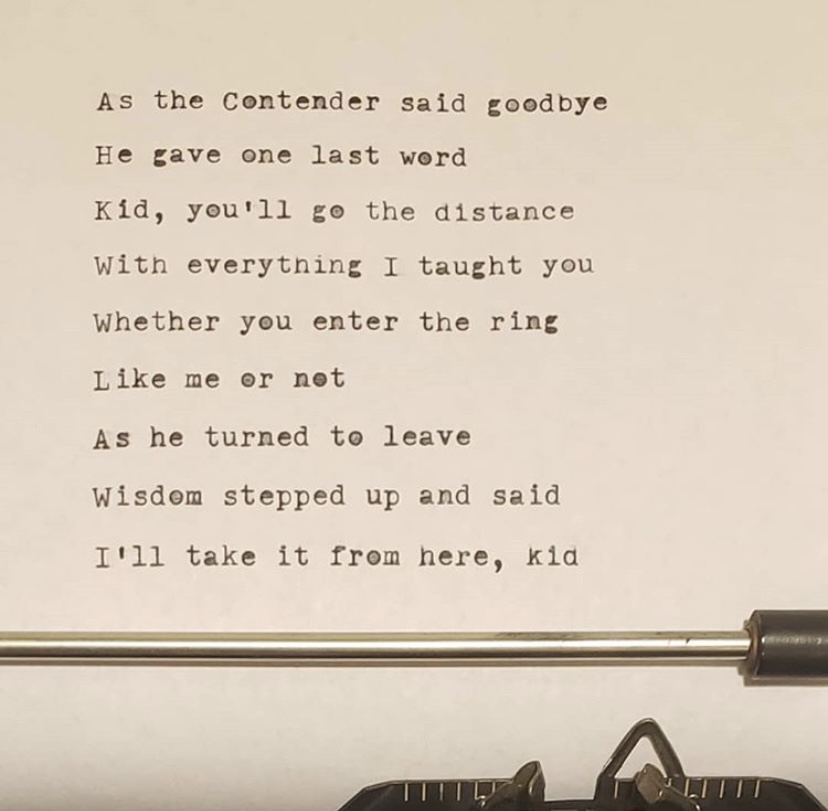 As the Contender said goodbye
He gave one last word
Kid, you'll go the distance
With everything I taught you
Whether you enter the ring
Like me or not
As he turned to leave
Wisdom stepped up and said
I'll take it from here, kid